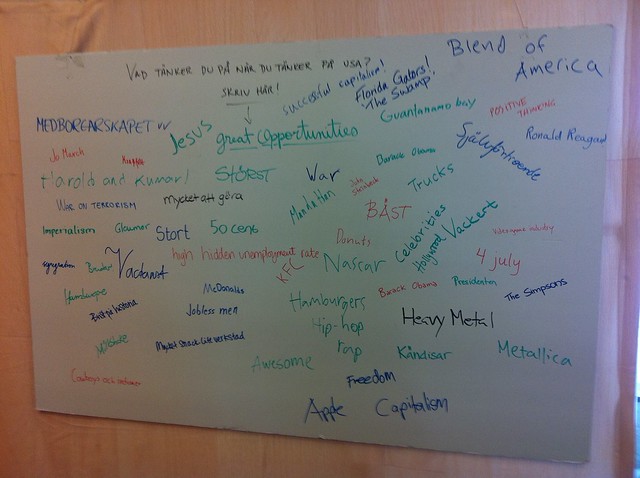 Blend of
America
VAD TÄNKER DU PÅ NÄR DU TÄNKER PÅ USA?
SKRIV HÄR!
successful capitalism!
Florida Gators!
The Swamp!
Guantanamo bay
POSITIVE
THINKING
MEDBORGARSKAPET
Jesus
great opportunities
Självförtroende
Ronald Reagan
Jo March
Knappar
Harold and Kumar!
STÖRST
War
Barack Obama
Trucks
WAR ON TERRORISM
mycket att göra
Manhattan
John
Steinbeck
BÄST
Celebrities
Hollywood
Vackert
Imperialism
Glamour
Stort
50 cent
Donuts
Videogame industry
segregation
Vackrast
high hidden unemployment rate
KFC
Nascar
4 july
Hamburgare
McDonalds
Hamburgers
Barack Obama
Presidenten
The Simpsons
Brist på historia
Jobless men
Hip-hop
Heavy Metal
rap
Kändisar
Metallica
Awesome
Cowboys och indianer
Freedom
Apple
Capitalism